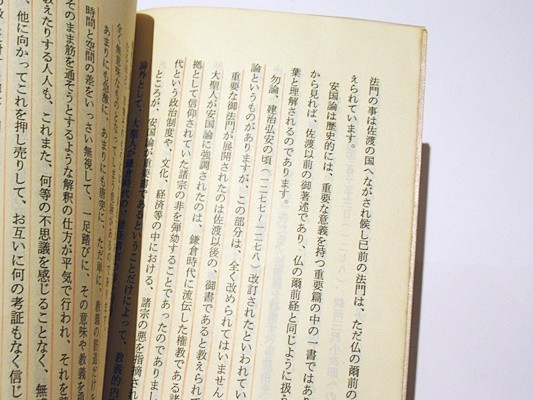 法門の事は佐渡の国へながされ候し已前の法門は、ただ仏の爾前の
えられています。
安国論は歴史的には、重要な意義を持つ重要篇の中の一書ではあり
から見れば、佐渡以前の御著述であり、仏の爾前経と同じように扱
葉と理解されるのであります。
勿論、建治弘安の頃（一二七七〜一二七八）改訂されたといわれてい
論というものがありますが、この部分は、全く改められてはいません
重要な御法門が展開されたのは佐渡以後の、御書であると教えられて
大聖人が安国論に強調されたのは、鎌倉時代に流伝した権教である諸
拠として信仰されていた諸宗の非を弾劾することであったのでありまし
代という政治制度や、文化、経済等の中における、諸宗の悪を指摘され
ところが、安国論が重要書であるということだけによって、教義的内
論外として、大聖人が鎌倉
全く無意味なものと
あまりにも急激に、あまりにも唐突に、ただ単に、教義の筋道だけを
時間と空間の差をいっさい無視して、一足踏びに、その意味や教義を
そのまま筋を通そうとするような解釈の仕方が平気で行われ、それを
教えたりする人人も、これまた、何等の不思議を感じることなく、無
、他に向かってこれを押し売りして、お互いに何の考証もなく信じ